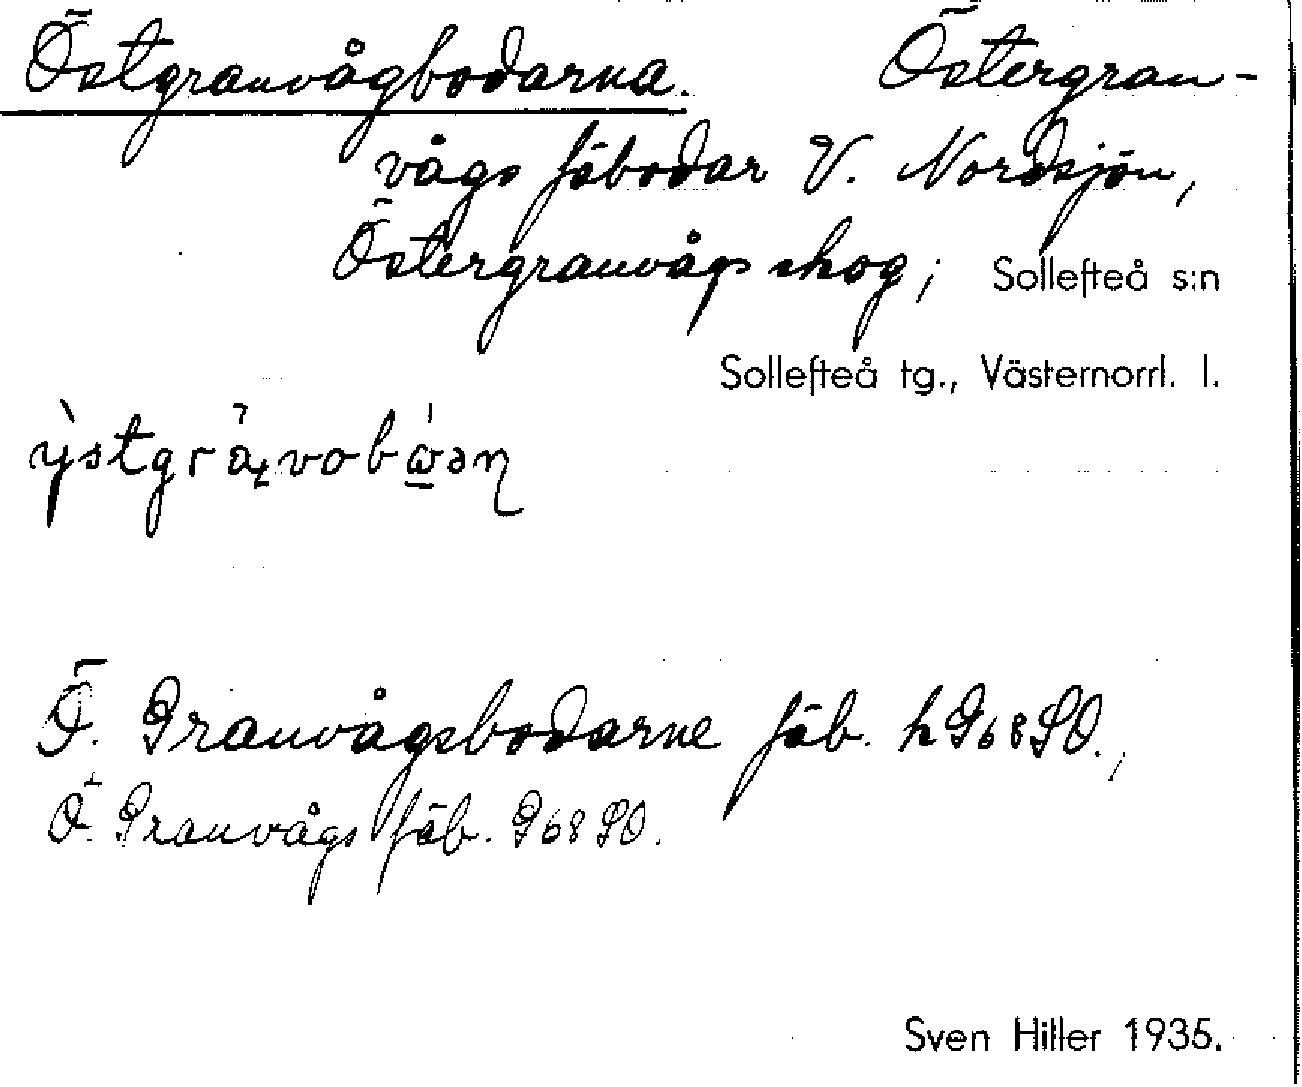 Östgranvågbodarna. Östergran-
vågs fäbodar V. Nordsjön,
Östergranvågs skog; Sollefteå s:n
Sollefteå tg., Västernorrl. l.
Ö. Granvågsbodarne fäb. h G68SO.,
Ö. Granvågs fäb. G68SO.
Sven Hiller 1935.